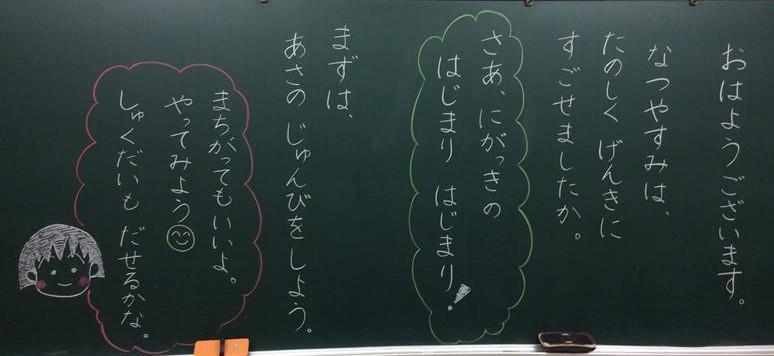 おはようございます。
なつやすみは、
たのしく げんきに
すごせましたか。
さあ、にがっきの
はじまり はじまり!
まずは、
あさの じゅんびを しよう。
まちがってもいいよ。
やってみよう
しゅくだいも だせるかな。